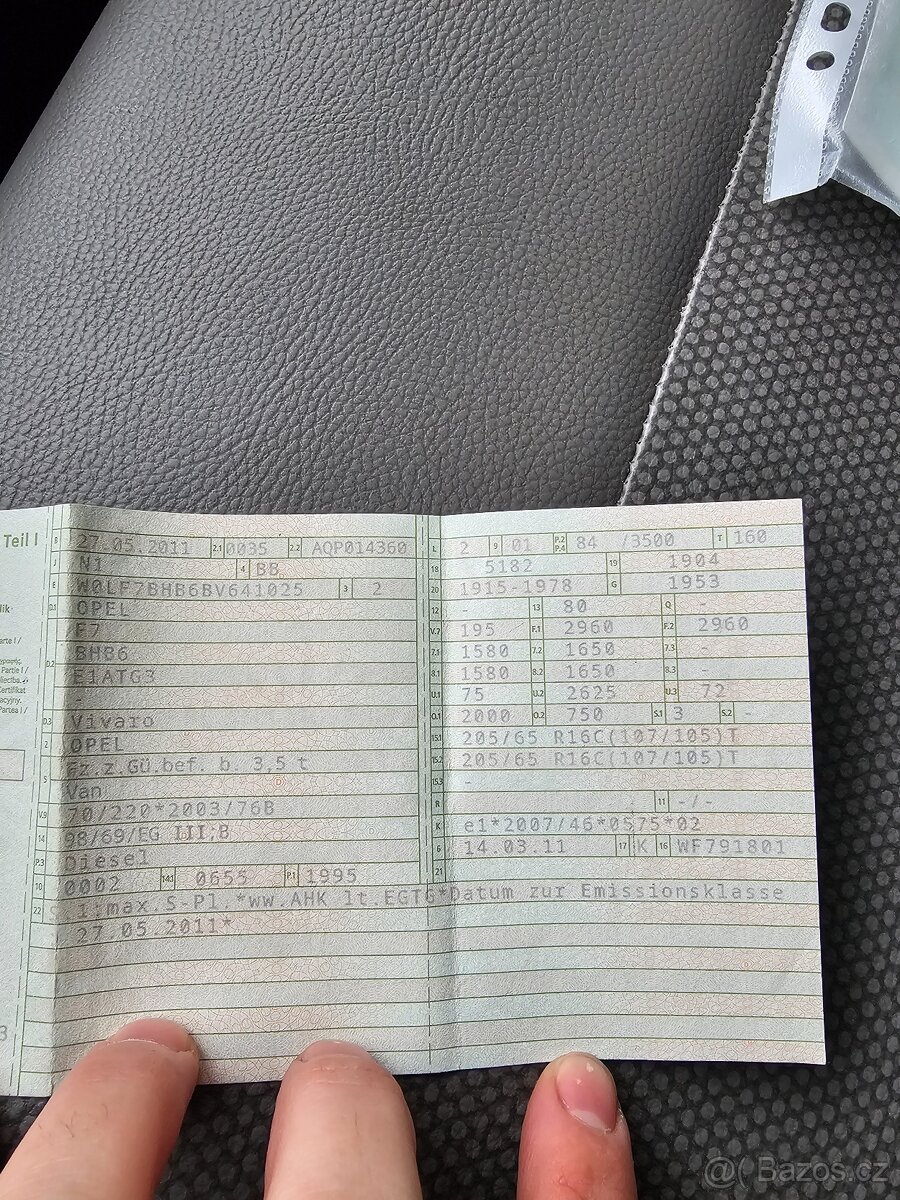 Teil I
B 27.05.2011 2.1 0035 2.2 AQP014360
J N1 4 BB
E W0LF7BHB6BV641025 3 2
D.1 OPEL
F7
D.2 BHB6
E1ATG3
-
D.3 Vivaro
2 OPEL
5 Fz.z.Gü.bef. b. 3,5 t
Van
V.9 70/220*2003/76B
14 98/69/EG III;B
P.3 Diesel
10 0002 14.1 0655 P.1 1995
22 1:max.S-Pl.*ww.AHK lt.EGTG*Datum zur Emissionsklasse
27.05.2011*
L 2 9 01 P.2 P.4 84 /3500 T 160
18 5182 19 1904
20 1915-1978 G 1953
12 - 13 80 Q -
V.7 195 F.1 2960 F.2 2960
7.1 1580 7.2 1650 7.3 -
8.1 1580 8.2 1650 8.3
U.1 75 U.2 2625 U.3 72
O.1 2000 O.2 750 S.1 3 S.2 -
15.1 205/65 R16C(107/105)T
15.2 205/65 R16C(107/105)T
15.3 -
R - 11 -/-
K e1*2007/46*0575*02
6 14.03.11 17 K 16 WF791801
21
lik
arte I /
Partie I /
Certifikat
acyjny.
Partea I /
3
@( Bazos.cz